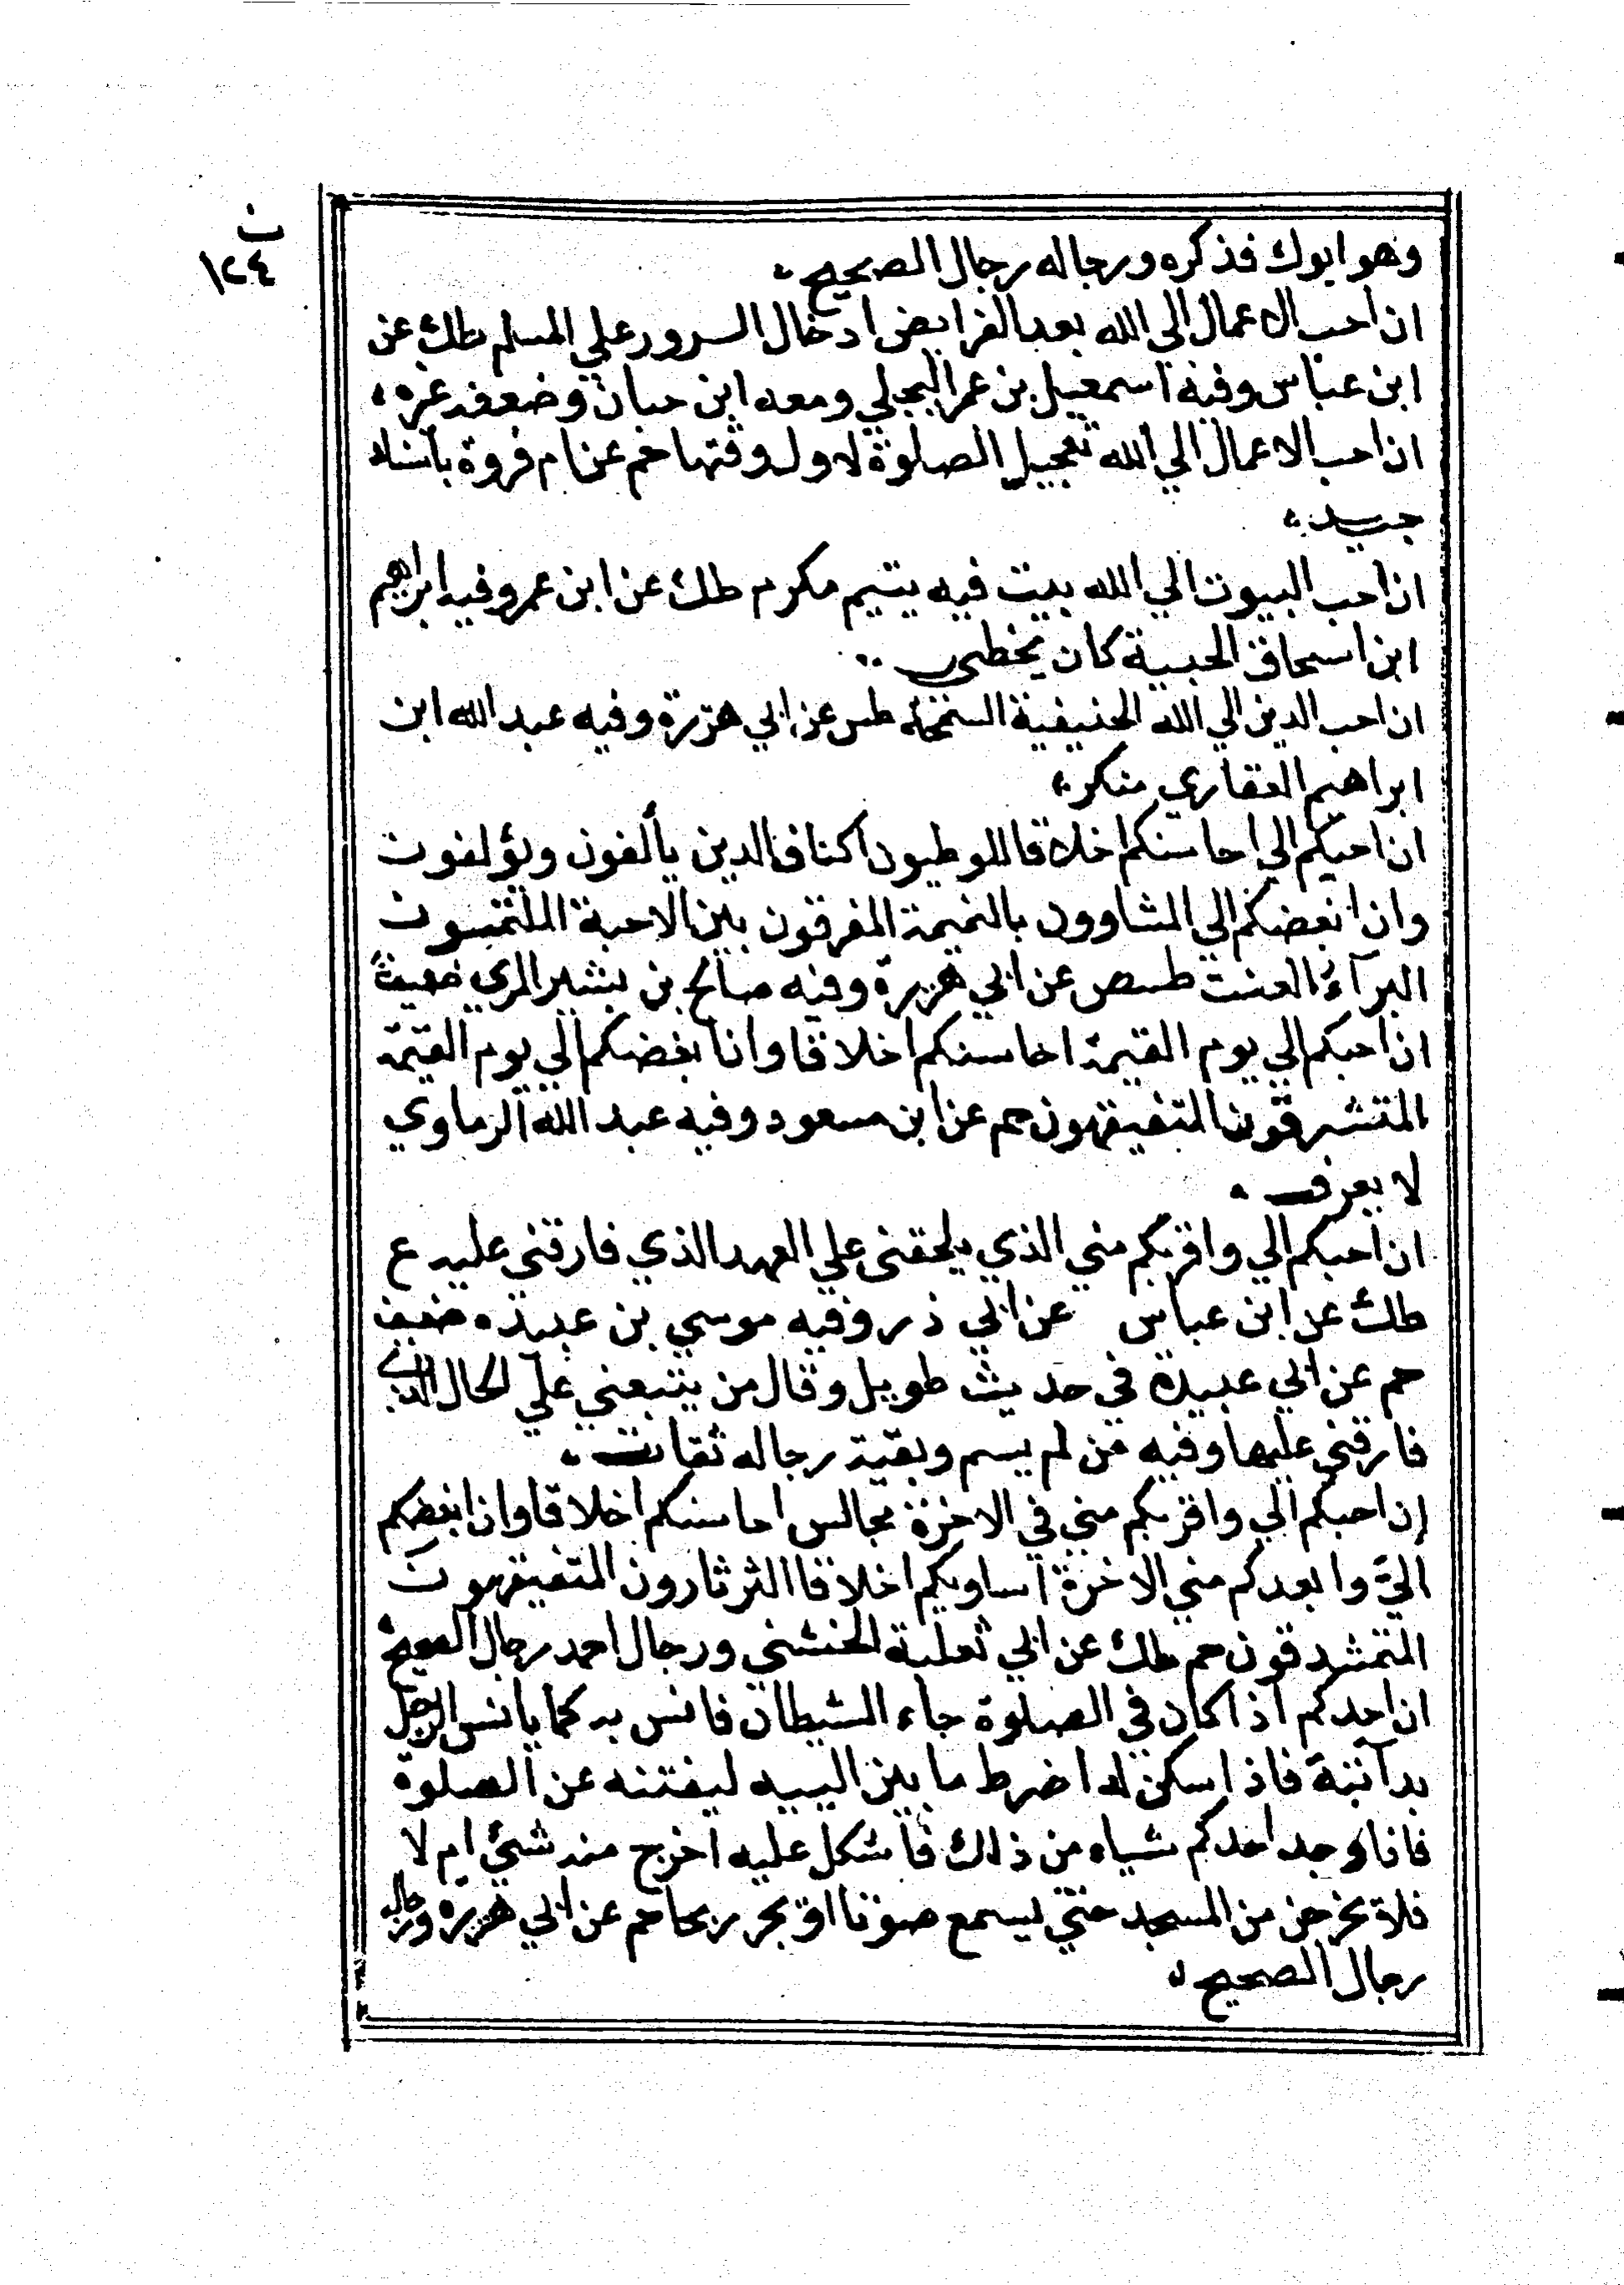 ن
١٢٤
وهو ابوك فذكره ورجاله رجال الصحيح
ان احب الاعمال الي الله بعد الفرايض ادخال السرور علي المسلم طك عن
ابن عباس وفيه اسمعيل بن عمر البجلي ومعه ابن حبان وضعفه غيره
ان احب الاعمال الي الله تعجيل الصلوة لاول وقتها حم عن ام فروة باسناد
جيد
ان احب البيوت الي الله بيت فيه يتيم مكرم طك عن ابن عمر وفيه ابراهيم
ابن اسحاق الحبيبة كان يخطى
ان احب الدين الي الله الحنيفية السمحة طس عن ابي هريرة وفيه عبد الله ابن
ابراهيم الغفاري منكر
ان احبكم الي احاسنكم اخلاقا الموطيون اكنافا الدين يألفون ويؤلفون
وان ابغضكم الي المشاوون بالنميمة المفرقون بين الاحبة الملتمسون
البرآء العنت طسص عن ابي هريرة وفيه صالح بن بشير المري ضعيف
ان احبكم الي يوم القيمة احاسنكم اخلاقا وان ابغضكم الي يوم القيمة
المتشرقون المتفيقهون حم عن ابن مسعود وفيه عبد الله الرماوي
لا يعرف
ان احبكم الي واقربكم مني الذي يلحقني علي العهد الذي فارقني عليه ع
طك عن ابن عباس عن ابي ذر وفيه موسي بن عبيده ضعيف
حم عن ابي عبيدة في حديث طويل وقال من يتبعني علي الحال الذي
فارقني عليها وفيه من لم يسم وبقية رجاله ثقات
ان احبكم الي واقربكم مني في الاخرة مجالس احاسنكم اخلاقا وان ابغضكم
اليّ وابعدكم مني الاخرة اساويكم اخلاقا الثرثارون المتفيقهون
المتمشدقون حم طك عن ابي ثعلبة الخشني ورجال احمد رجال الصحيح
ان احدكم اذا كان في الصلوة جاء الشيطان فانس به كما يانس الرجل
بدآبتة فاذا سكن له اضرط ما بين اليبيه ليفتنه عن الصلوة
فاذا وجد احدكم شياء من ذلك فاشكل عليه اخرج منه شئي ام لا
فلا يخرجن من المسجد حتي يسمع صوتا او يجر ريحا حم عن ابي هريره ورجاله
رجال الصحيح